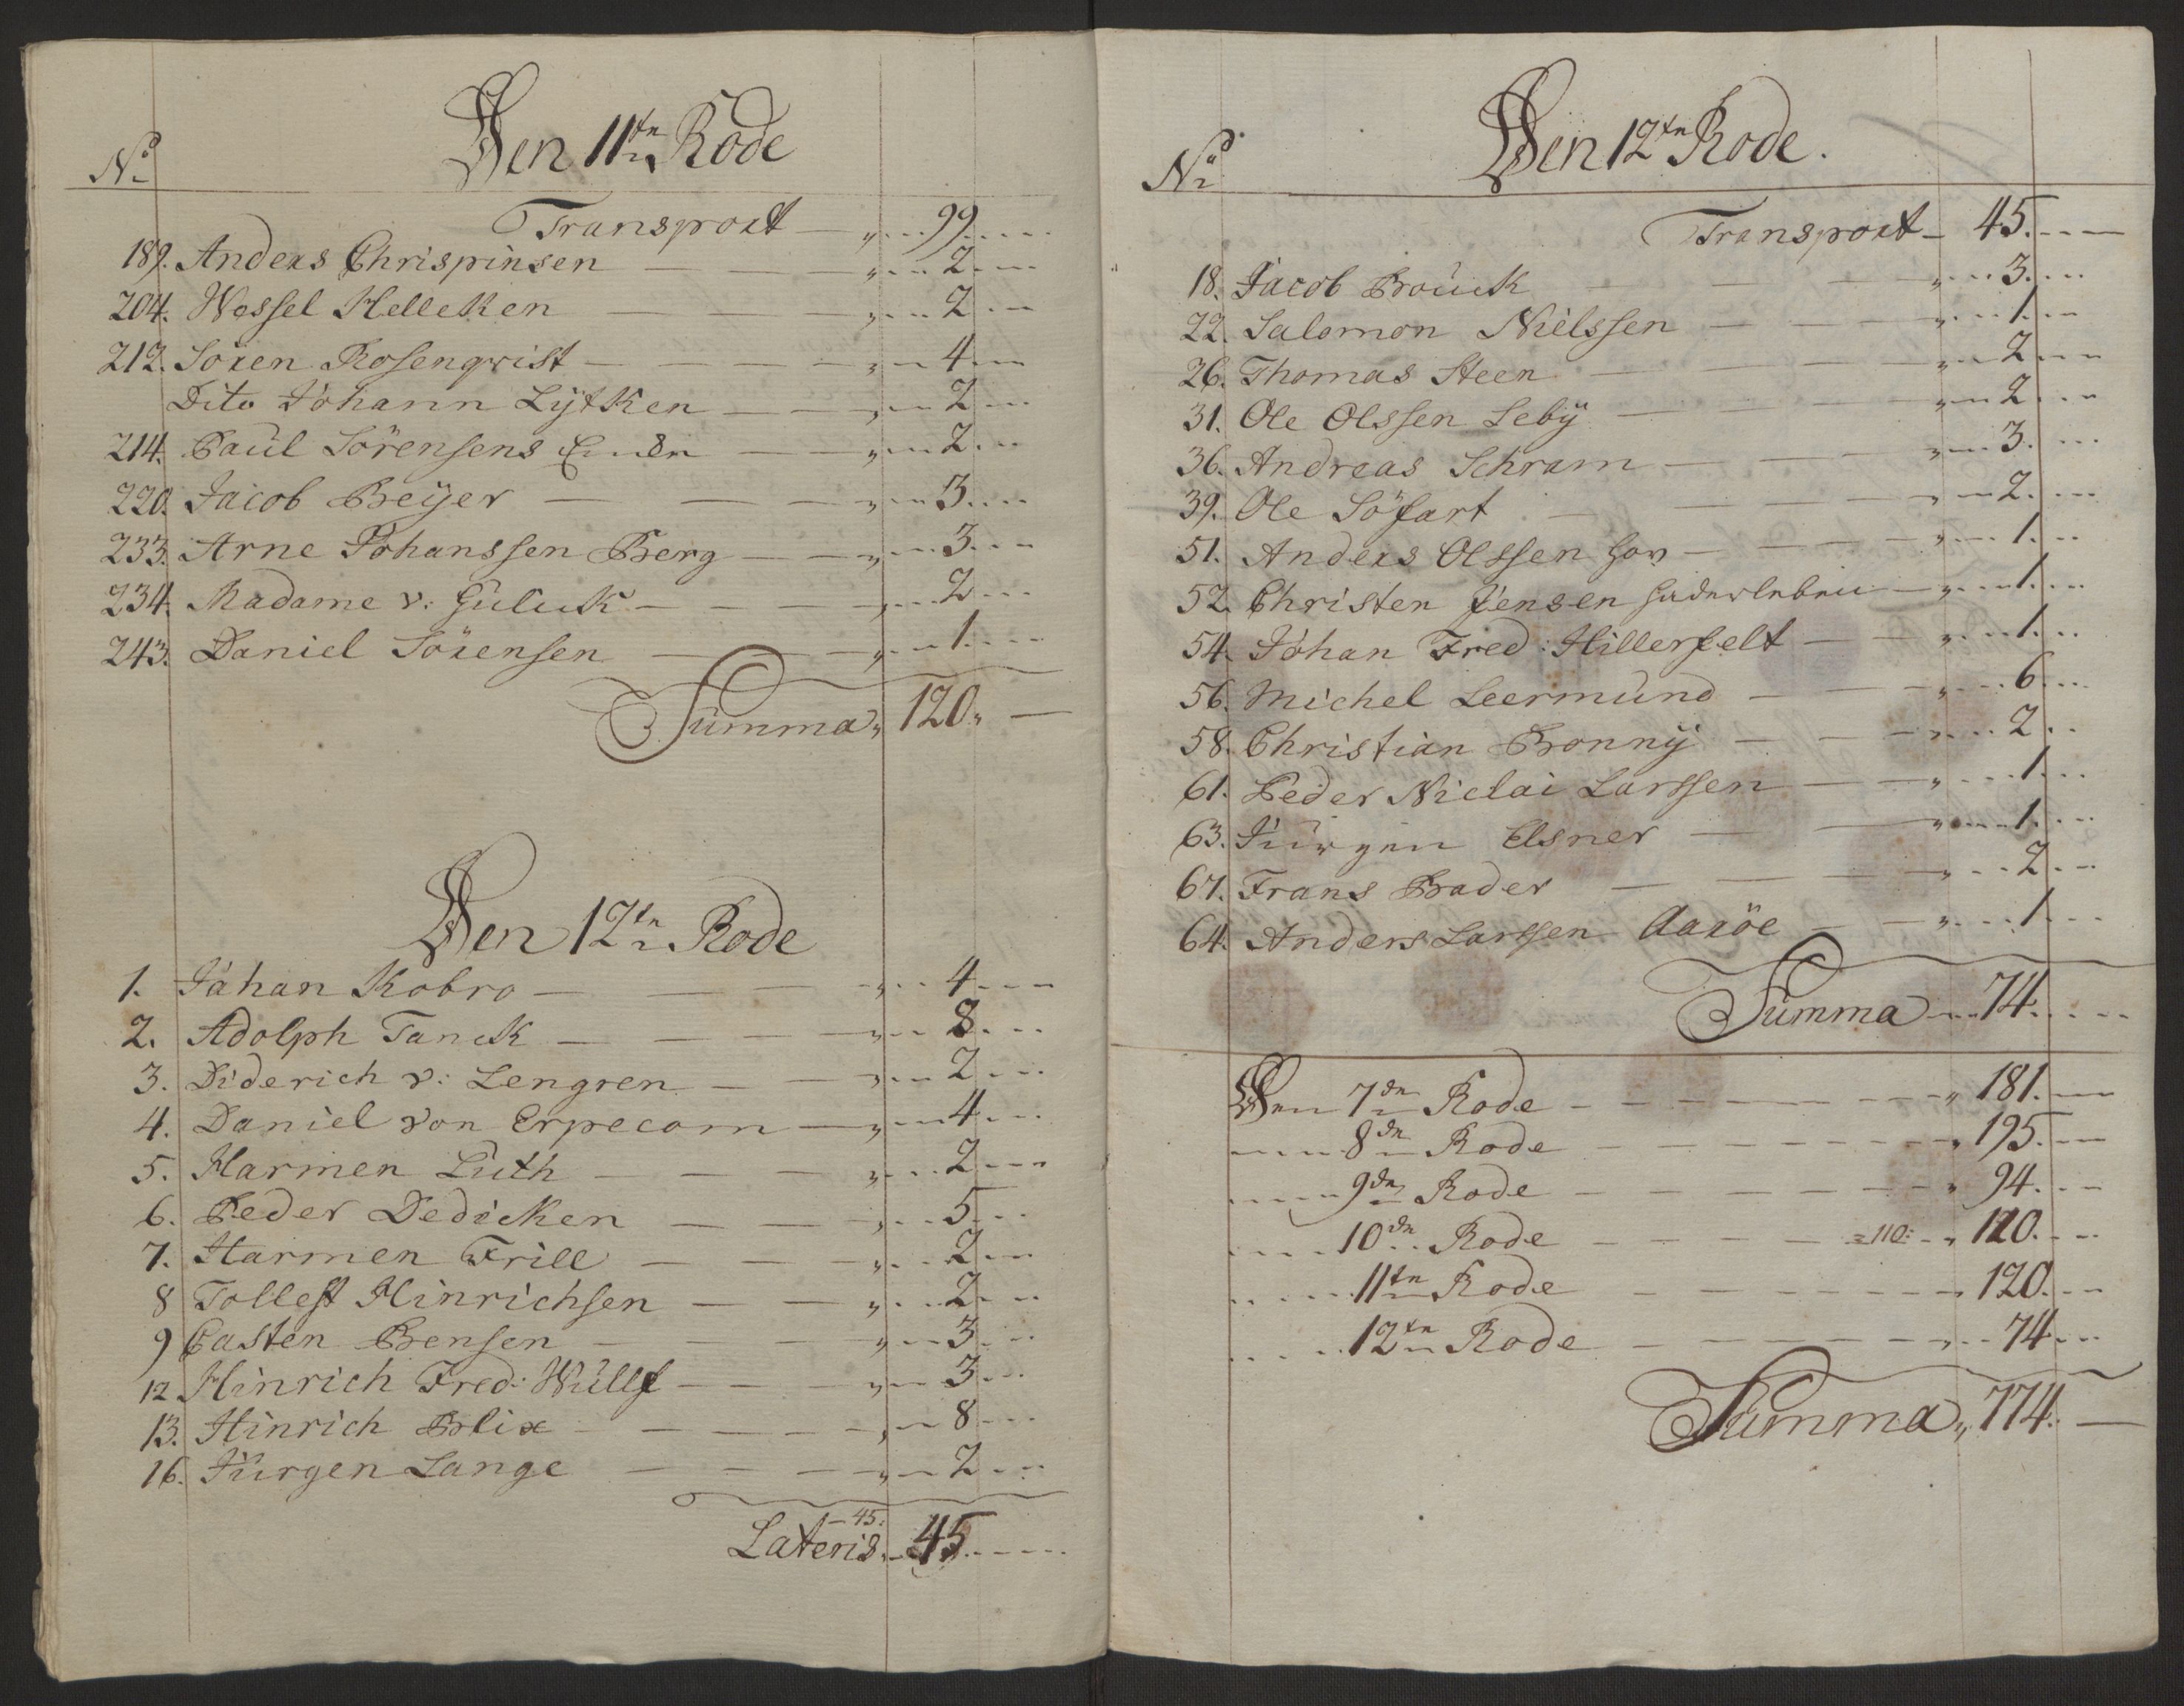 Den 11tn Rode
No
Transport „ 99.
189. Anders Chrispinsen „ 2.
204. Wessel Helleken „ 2
212. Sören Rosenqvist „ 4
Dito Johann Lÿtken „ 2
214. Paul Sörensens „ 2
220. Jacob Beÿer „ 3.
233. Arne Johanssen Berg „ 3.
234. Madame v: Güluk „ 2
243. Daniel Sörensen „ 1.
Summa „ 120 „
Den 12tn Rode
1. Jahan Kobro „ 4
2. Adolph Tanck „ 8.
3. Diderich v: Lengren „ 2
4. Daniel von Erpecom „ 4
5. Harmen Luth „ 2
6. Peder Dedicken „ 5
7. Harmen Frill „ 2
8 Tollest Hinrichsen „ 2
9 Casten Bensen „ 3
12 Hinrich Fred: Wüllf „ 3
13. Hinrich Blix „ 8
16. Jürgen Lange „ 2
45:
Lateris. 45
Den 12tn Rode.
No
Transport 45.
18. Jacob Brouck „ 3.
22. Salomon Nielssen „ 1.
26. Thomas Steen „ 2
31. Ole Olssen Lebÿ „ 2
36. Andreas Schram „ 3.
39. Ole Söfart „ 2.
51. Anders Olssen Hov „ 1.
52. Christen Jensen Haderleben „ 1.
54. Johan Fred: Hillerfelt „ 1.
56. Michel Leermund „ 6
58. Christian Bonnÿ „ 2
61. Peder Niclai Larssen „ 1.
63. Jürgen Elsner „ 1.
67. Frans Bader „ 2
64. Anders Larssen Aaröe „ 1
Summa 74.
Den 7dn Rode „ 181.
8dn Rode „ 195.
9dn Rode „ 94.
10dn Rode =110: „ 110.
11tn Rode „ 120.
12tn Rode „ 74
Summa „ 774.